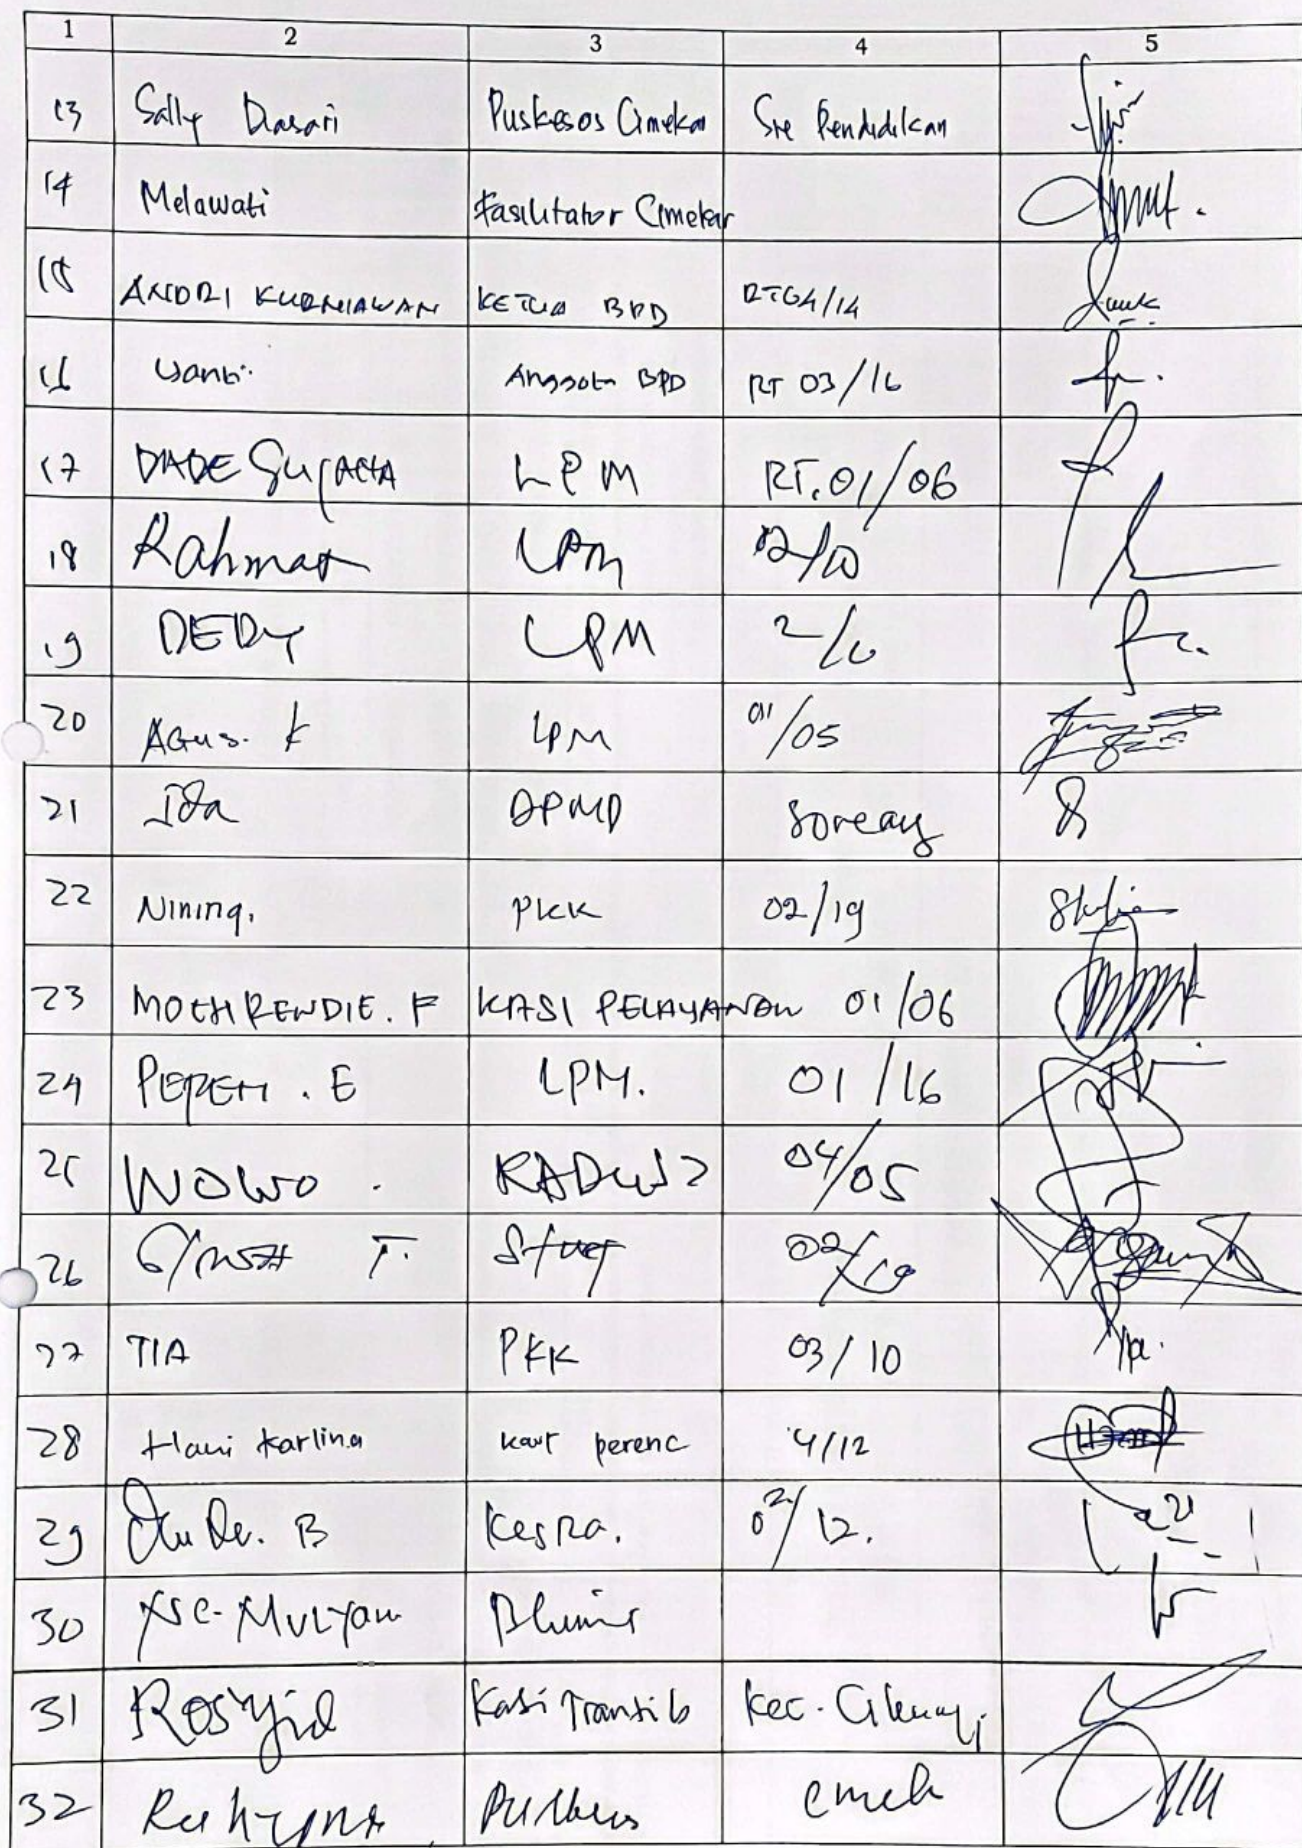 1 2 3 4 5
13 Sally Diasari Puskesos Cimekar Sre Pendidikan
14 Melawati Fasilitator Cimekar
15 ANDRI KURNIAWAN KETUA BPD RT04/14
16 Anggota BPD RT 03/16
17 DADE LPM RT.01/06
18 Rahmat LPM 02/10
19 DEDY LPM
20 Agus. K LPM 01/05
21 Ida DPMD Soreang
22 Nining. PKK 02/19
23 MOCH RENDIE. F KASI PELAYANAN 01/06
24 PEPEN . E LPM. 01/16
25 WOWO . KADUS 2 04/05
26 T. Staf 02/19
27 TIA PKK 03/10
28 Hani Karlina kaur perenc 4/12
29 B Kesra. 02/12.
30
31 Rosyid Kasi Trantib Kec. Cileunyi
32